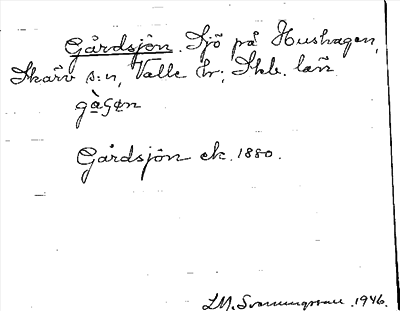 Gårdsjön. Sjö på Hushagen,
Skärv s:n, Valle hr; Skb. län
Gårdsjön ek. 1880.
1946.